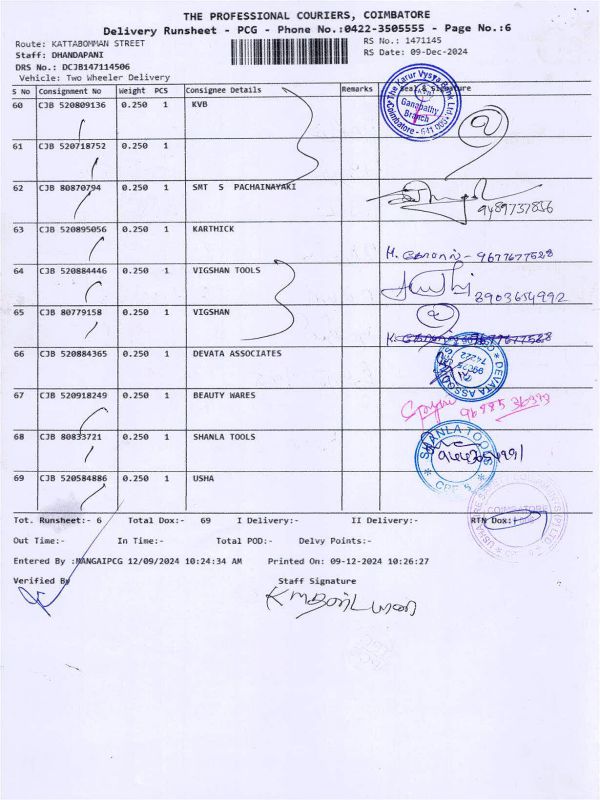 THE PROFESSIONAL COURIERS, COIMBATORE
Delivery Runsheet - PCG - Phone No.:0422-3505555 - Page No.:6
Route: KATTABOMMAN STREET
RS No.: 1471145
Staff: DHANDAPANI
RS Date: 09-Dec-2024
DRS No.: DCJB147114506
Vehicle: Two Wheeler Delivery
S No Consignment No Weight PCS Consignee Details Remarks Seal & Signature
60 CJB 520809136 0.250 1 KVB
The Karur Vysya Bank Ltd. Ganapathy Branch Coimbatore - 641 006
61 CJB 520718752 0.250 1
62 CJB 80870794 0.250 1 SMT S PACHAINAYAKI
9489737856
63 CJB 520895056 0.250 1 KARTHICK
9677677528
64 CJB 520884446 0.250 1 VIGSHAN TOOLS
8903654992
65 CJB 80779158 0.250 1 VIGSHAN
66 CJB 520884365 0.250 1 DEVATA ASSOCIATES
67 CJB 520918249 0.250 1 BEAUTY WARES
68 CJB 80833721 0.250 1 SHANLA TOOLS
SHANLA TOOLS
69 CJB 520584886 0.250 1 USHA
COIMBATORE
Tot. Runsheet:- 6 Total Dox:- 69 I Delivery:- II Delivery:- RTN Dox:-
Out Time:- In Time:- Total POD:- Delvy Points:-
Entered By :MANGAIPCG 12/09/2024 10:24:34 AM Printed On: 09-12-2024 10:26:27
Verified By Staff Signature